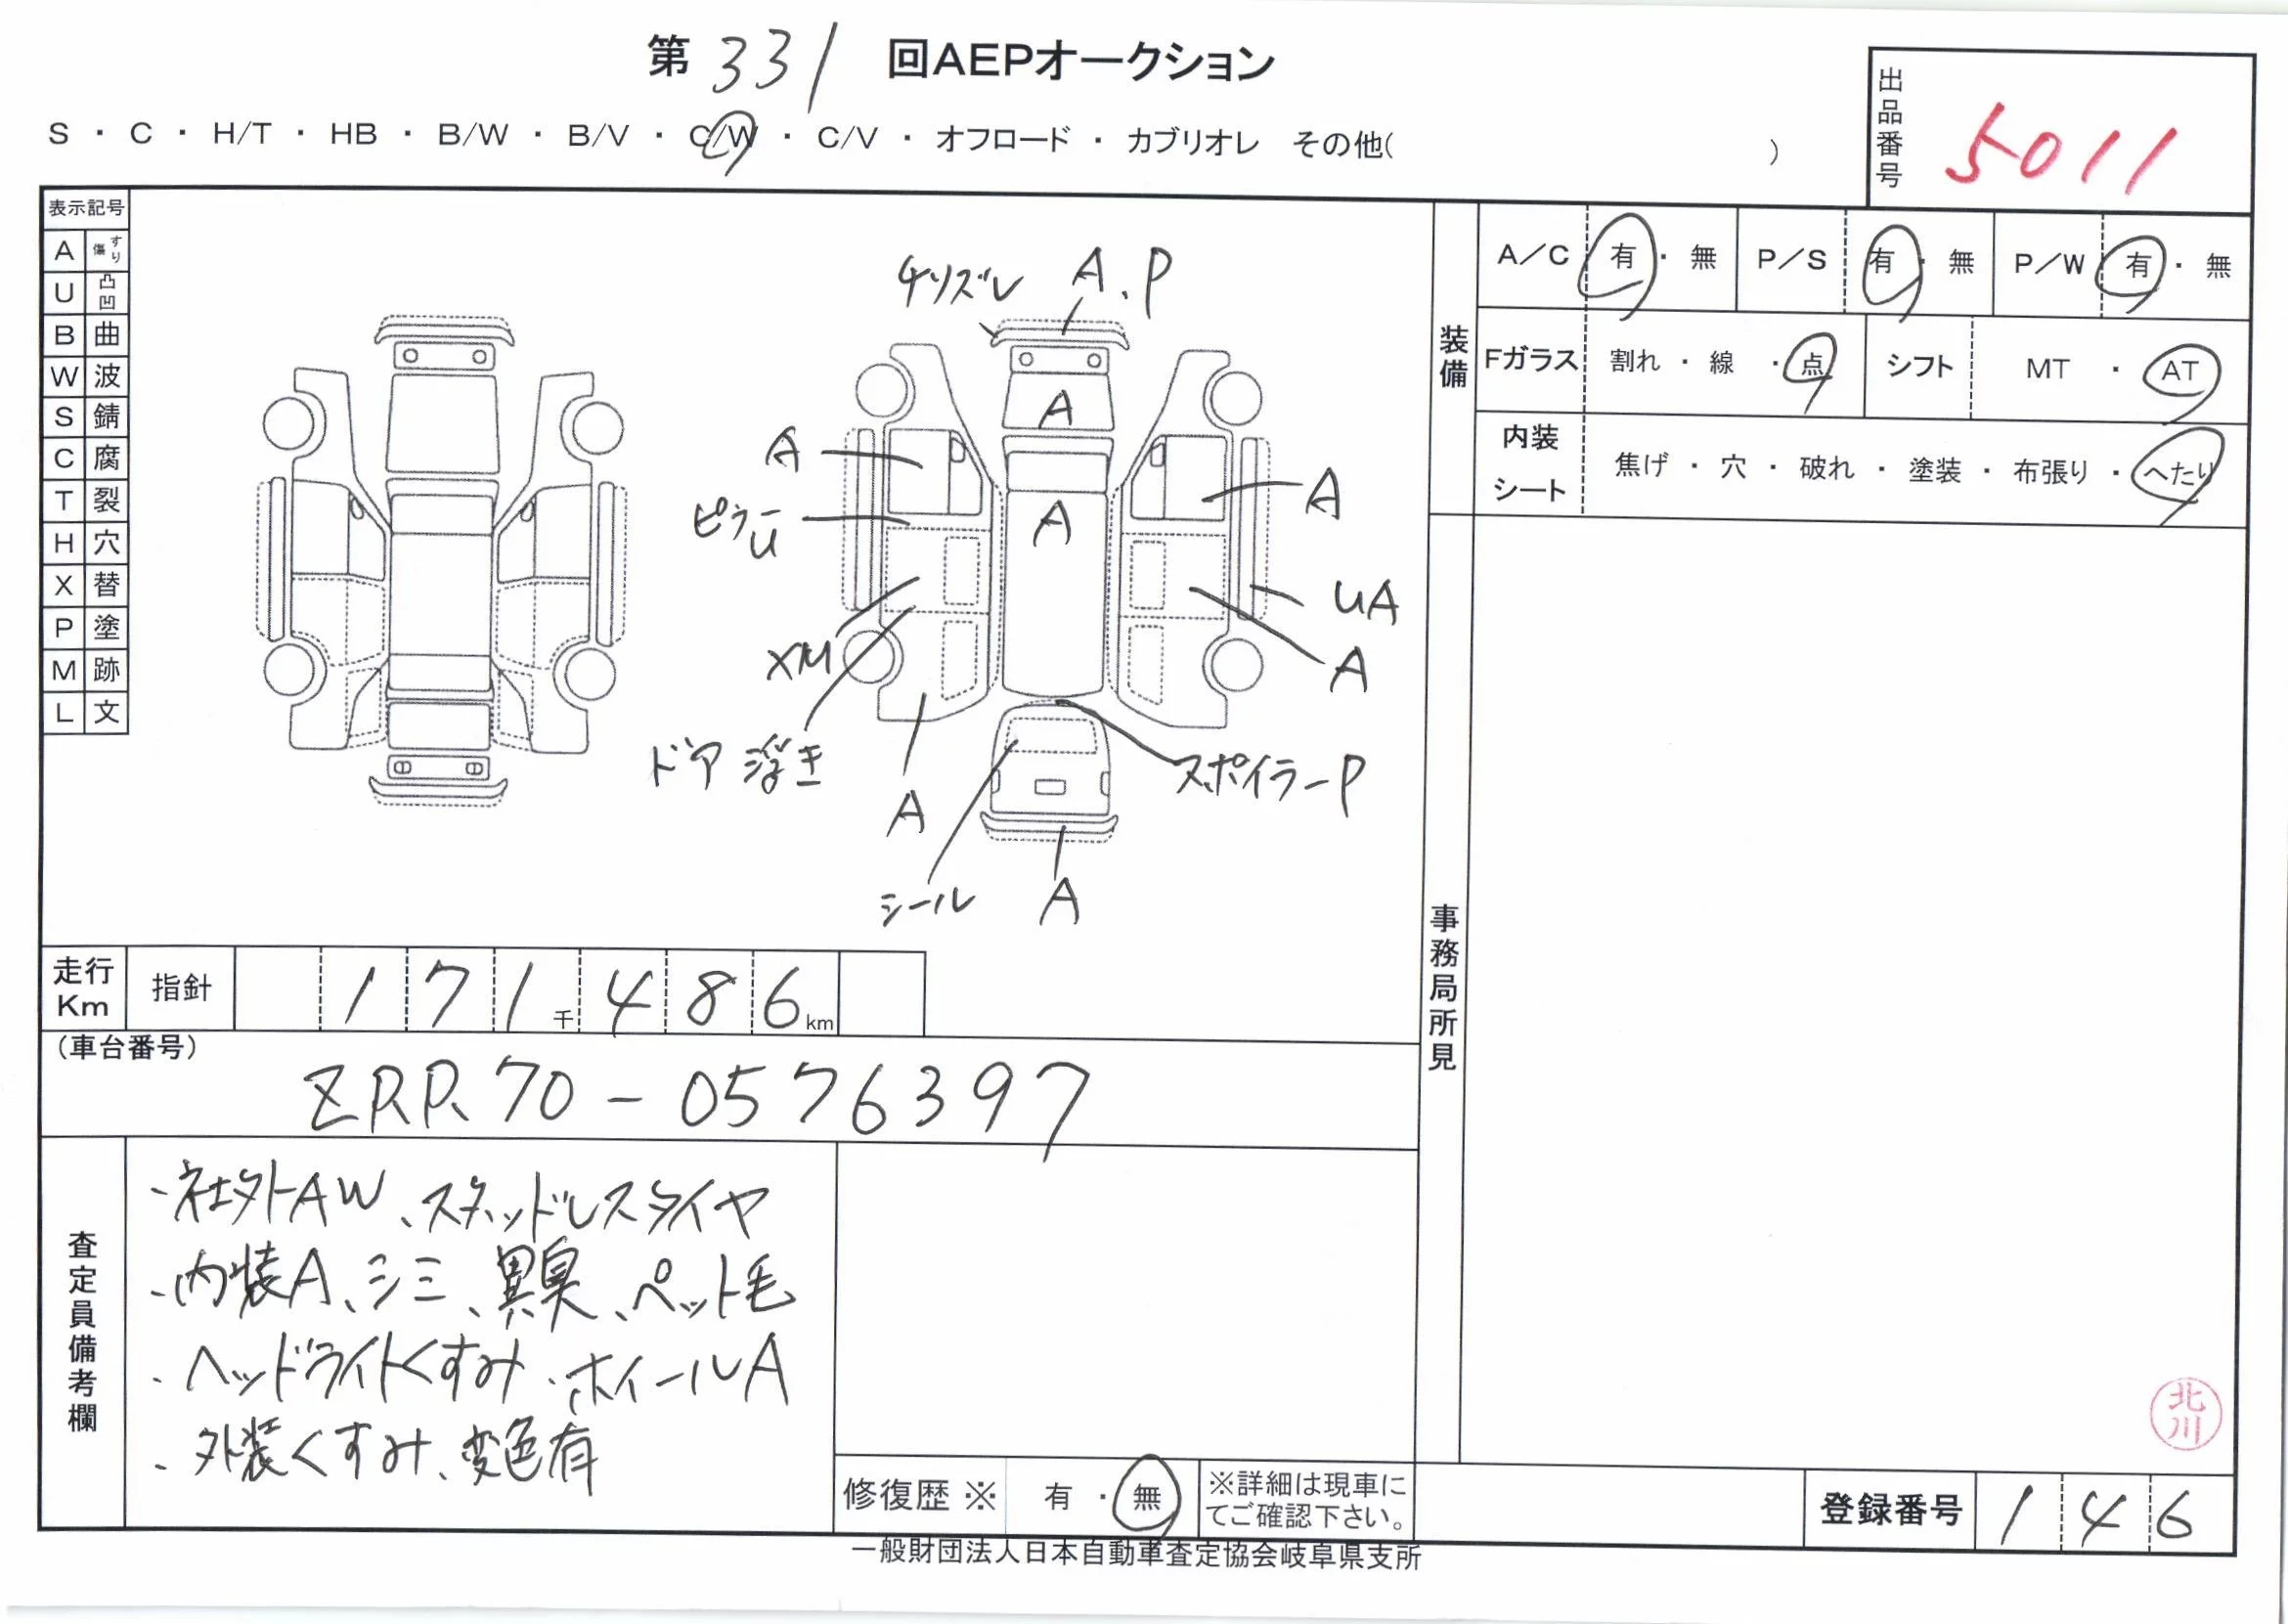 第 331 回AEPオークション
S ・ C ・ H/T ・ HB ・ B/W ・ B/V ・ C/W ・ C/V ・ オフロード ・ カブリオレ その他( )
出品番号 5011
表示記号
A すり傷
U 凸凹
B 曲
W 波
S 錆
C 腐
T 裂
H 穴
X 替
P 塗
M 跡
L 文
チリズレ A、P
A
A
A
A
ピラーU
A
UA
XM
A
ドア浮き
スポイラーP
A
シール
A
装備
A/C 有 ・ 無 P/S 有 ・ 無 P/W 有 ・ 無
Fガラス 割れ ・ 線 ・ 点 シフト MT ・ AT
内装シート 焦げ ・ 穴 ・ 破れ ・ 塗装 ・ 布張り ・ へたり
事務局所見
走行Km 指針 171千486km
(車台番号)
ZRR70-0576397
査定員備考欄
・社外AW、スタッドレスタイヤ
・内装A、シミ、異臭、ペット毛
・ヘッドライトくすみ・ホイールA
・外装くすみ、変色有
修復歴 ※ 有 ・ 無 ※詳細は現車にてご確認下さい。
北川
登録番号 146
一般財団法人日本自動車査定協会岐阜県支所